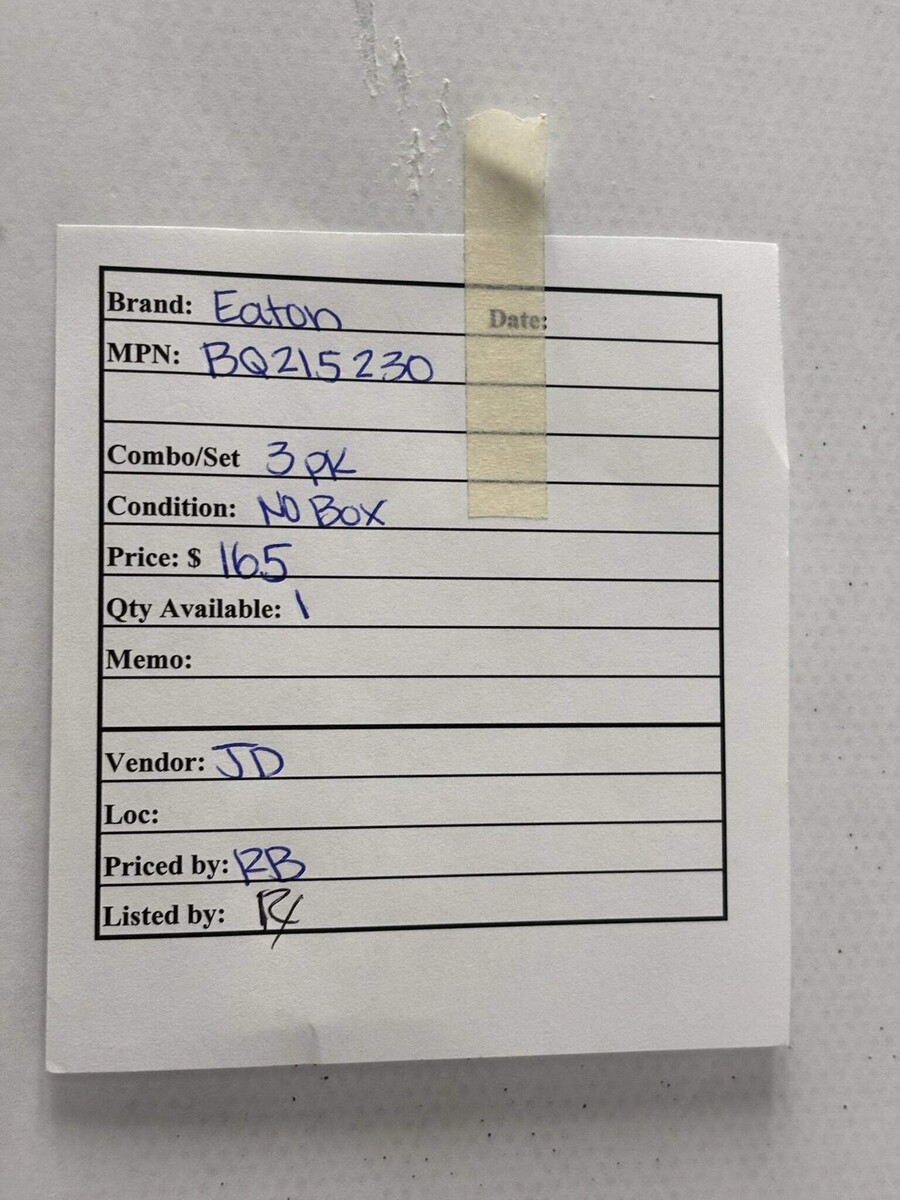 Brand: Eaton Date:
MPN: BQ215230
Combo/Set 3 pk
Condition: NO BOX
Price: $ 165
Qty Available: 1
Memo:
Vendor: JD
Loc:
Priced by: RB
Listed by: